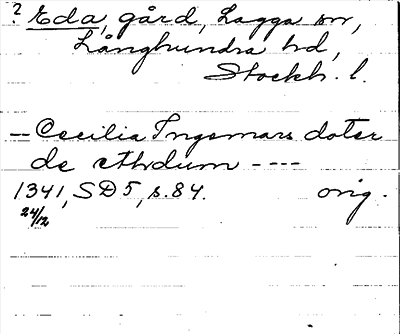 ? Eda, gård, Lagga sn,
Långhundra hd,
Stockh. l.
– Cecilia Ingemars doter
de Athdum ----
1341, SD 5, s. 84. orig.
24/12